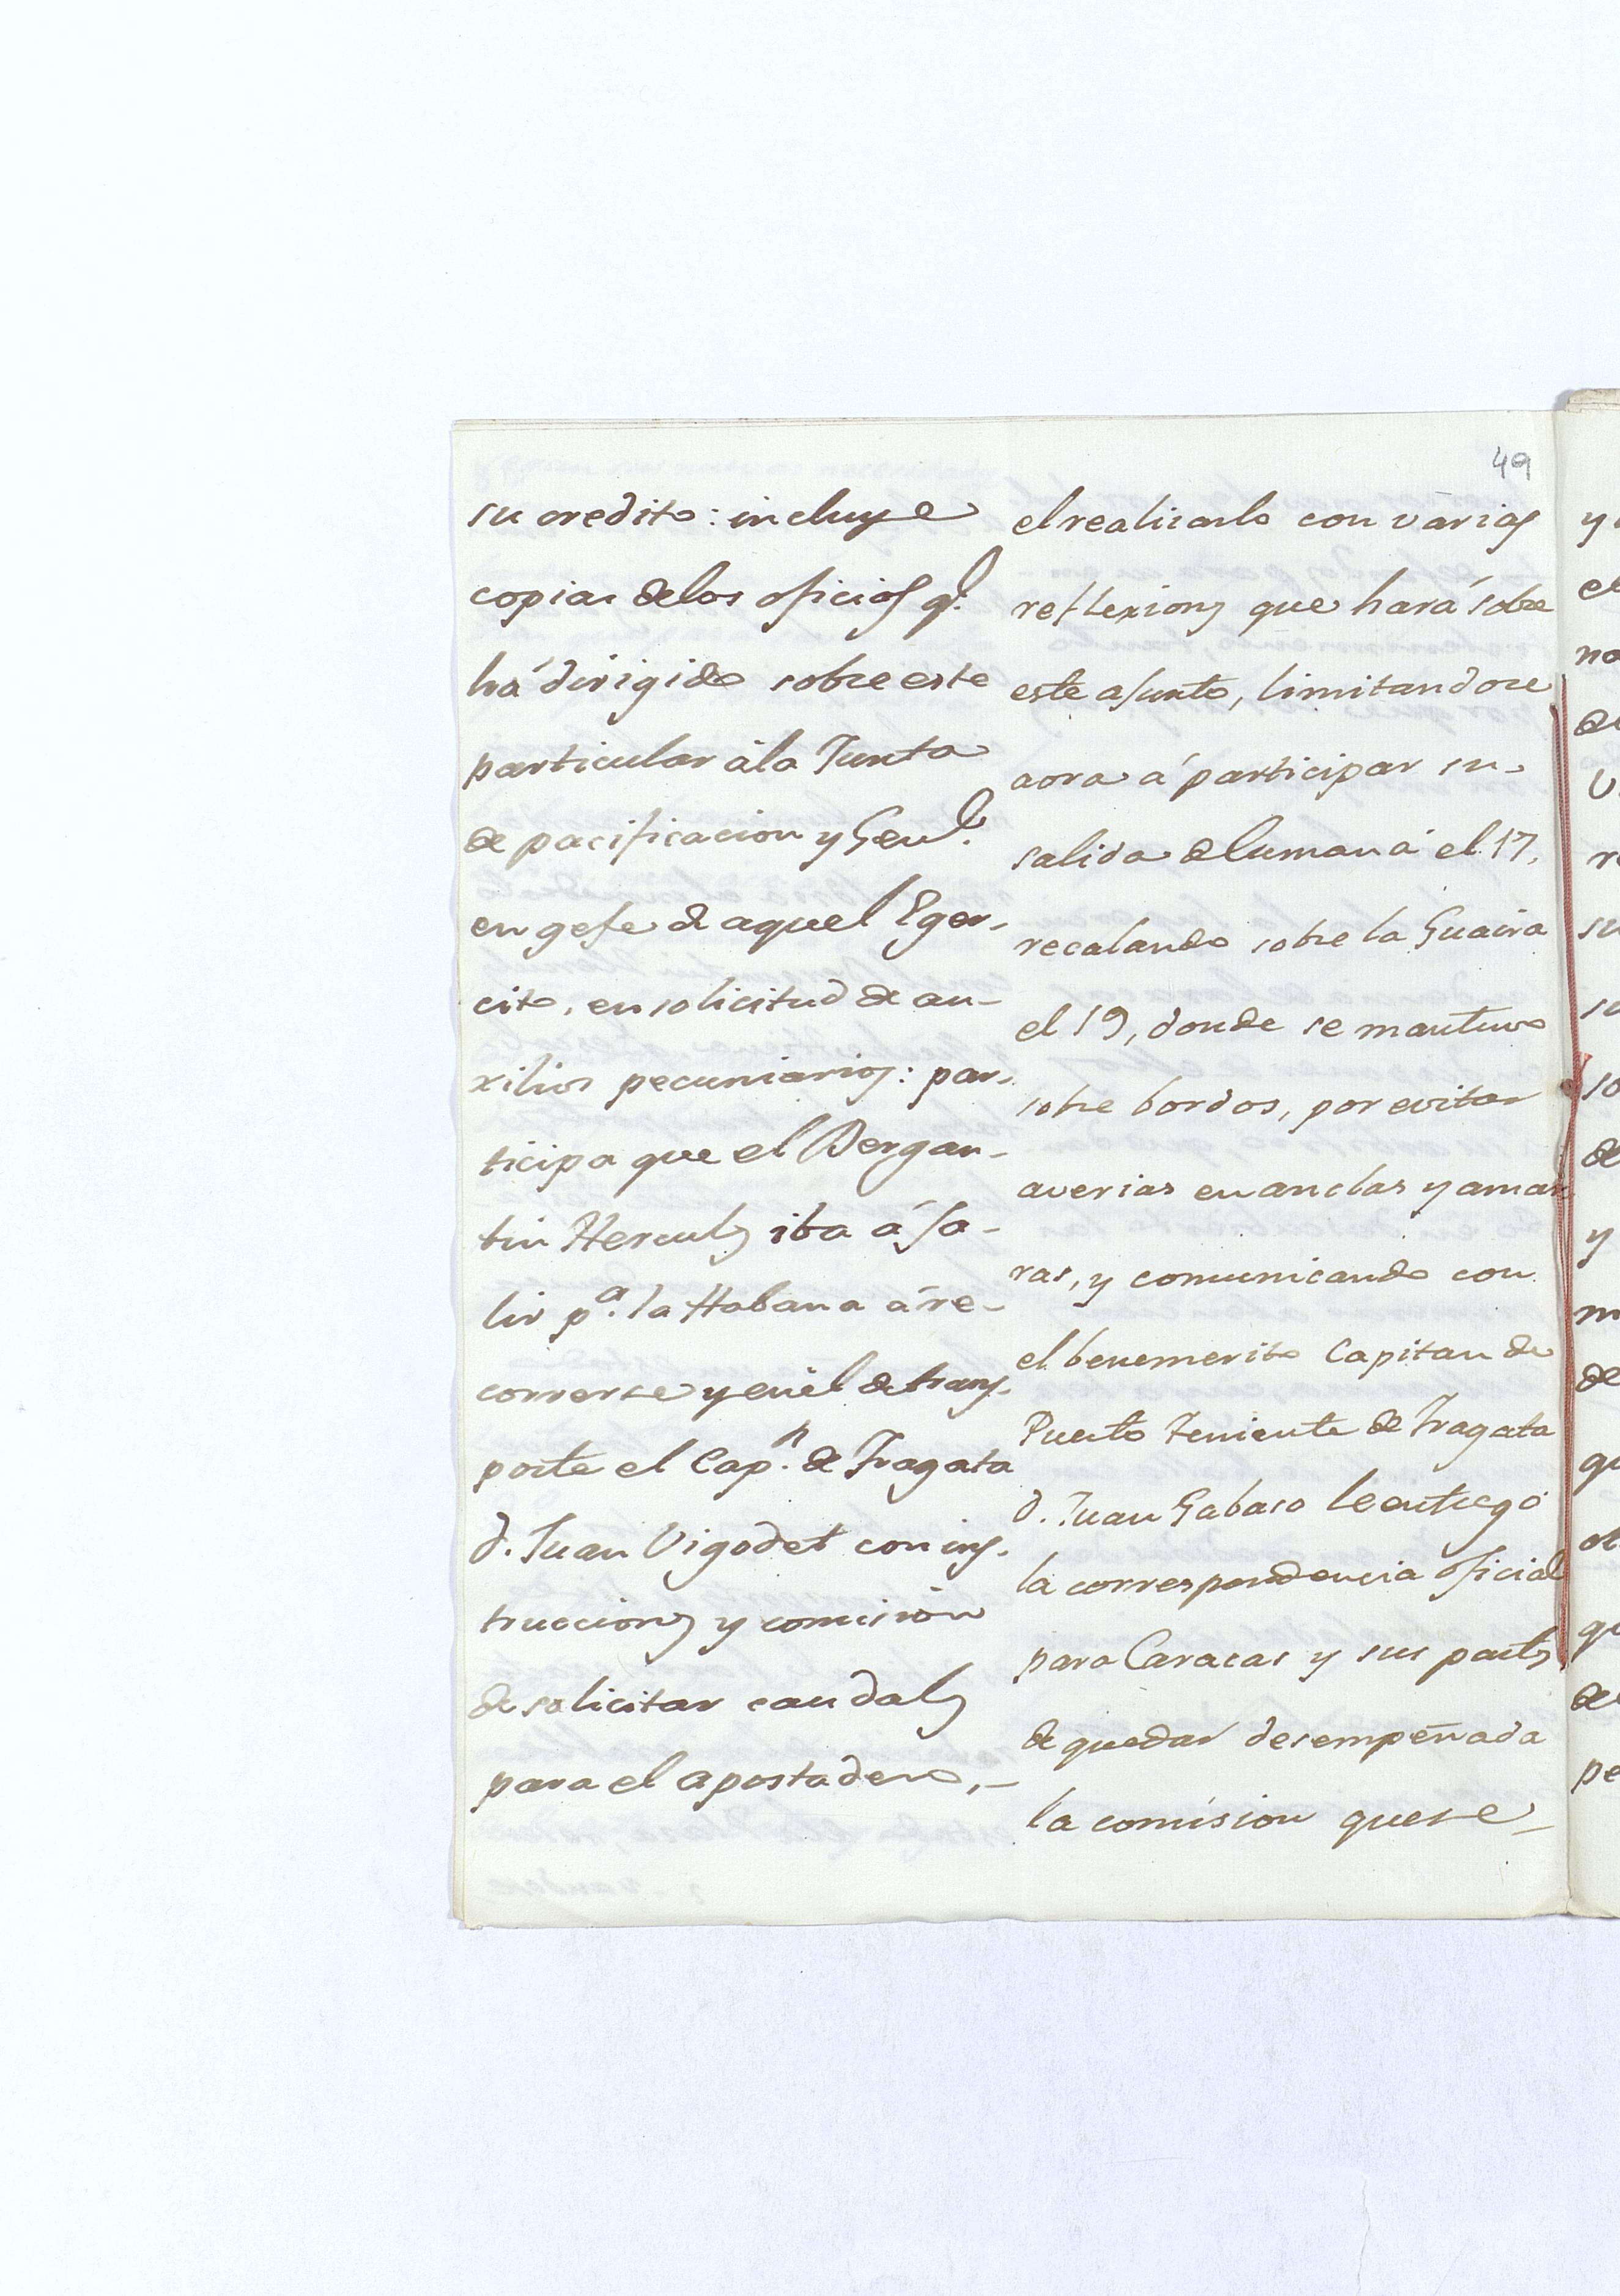 49
su credito: incluye
copias delos oficios q.e
há dirigido sobre este
particular àla Junta
de pacificacion y Gen.l
en gefe de aquel Eger-
cito, en solicitud de au-
xilios pecuniarios: par-
ticipa que el Bergan-
tin Hercules iba á sa-
lir p.a la Habana á re-
correrse y en èl de trans-
porte el Cap.n de Fragata
d. Juan Vigodet con ins-
trucciones y comision
de solicitar caudales
para el apostadero,-
el realizarlo con varias
reflexiones que hará sobre
este asunto, limitandose
aora á participar su-
salida de Cumaná el 17,
recalando sobre la Guaira
el 19, donde se mantuvo
sobre bordos, por evitar
averias en anclas y amar
ras, y comunicando con
el benemerito Capitan de
Puerto Teniente de Fragata
d. Juan Gabaso le entregó
la correspondencia oficial
para Caracas y sus partes
de quedar desempeñada
la comision que se-